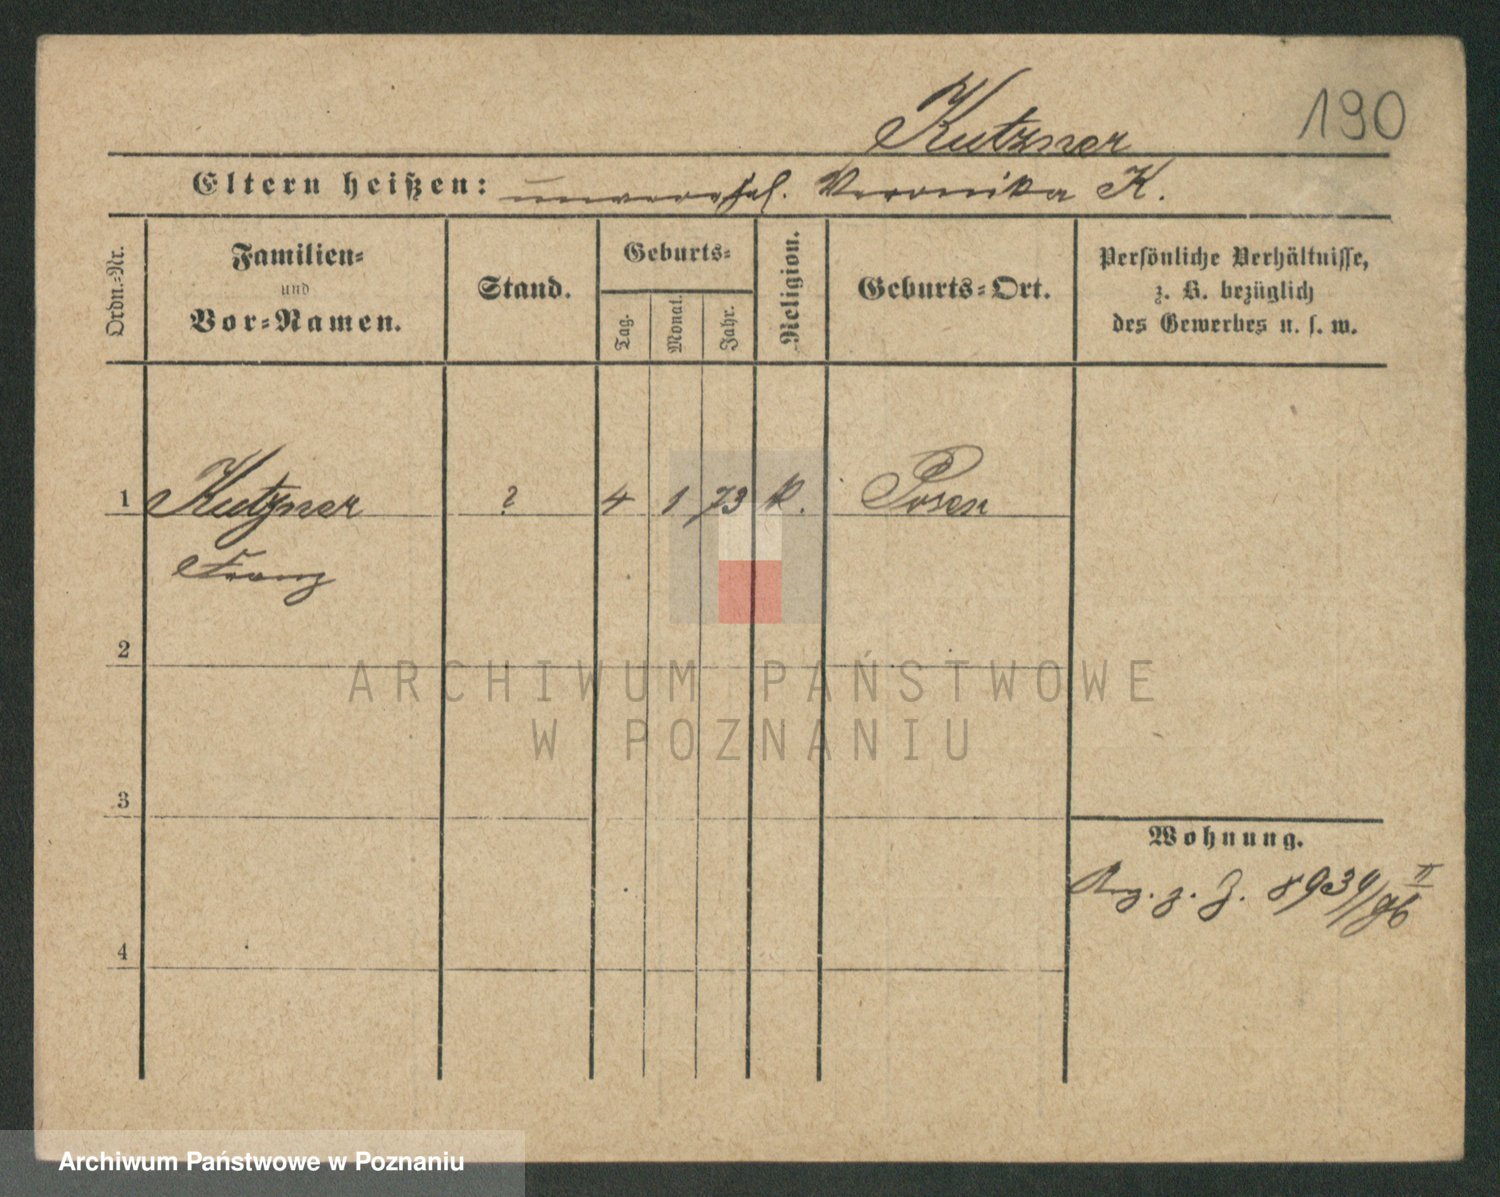 190
Kutzner
Eltern heißen: unverehel. Veronika K.
Ordn.=Nr.
Familien=
und
Vor=Namen.
Stand.
Geburts=
Tag.
Monat.
Jahr.
Religion.
Geburts=Ort.
Persönliche Verhältnisse,
z. B. bezüglich
des Gewerbes u. s. w.
1 Kutzner ? 4 1 73 k. Posen
Franz
2
ARCHIWUM PAŃSTWOWE
W POZNANIU
3
Wohnung.
8934/96 II
4
Archiwum Państwowe w Poznaniu